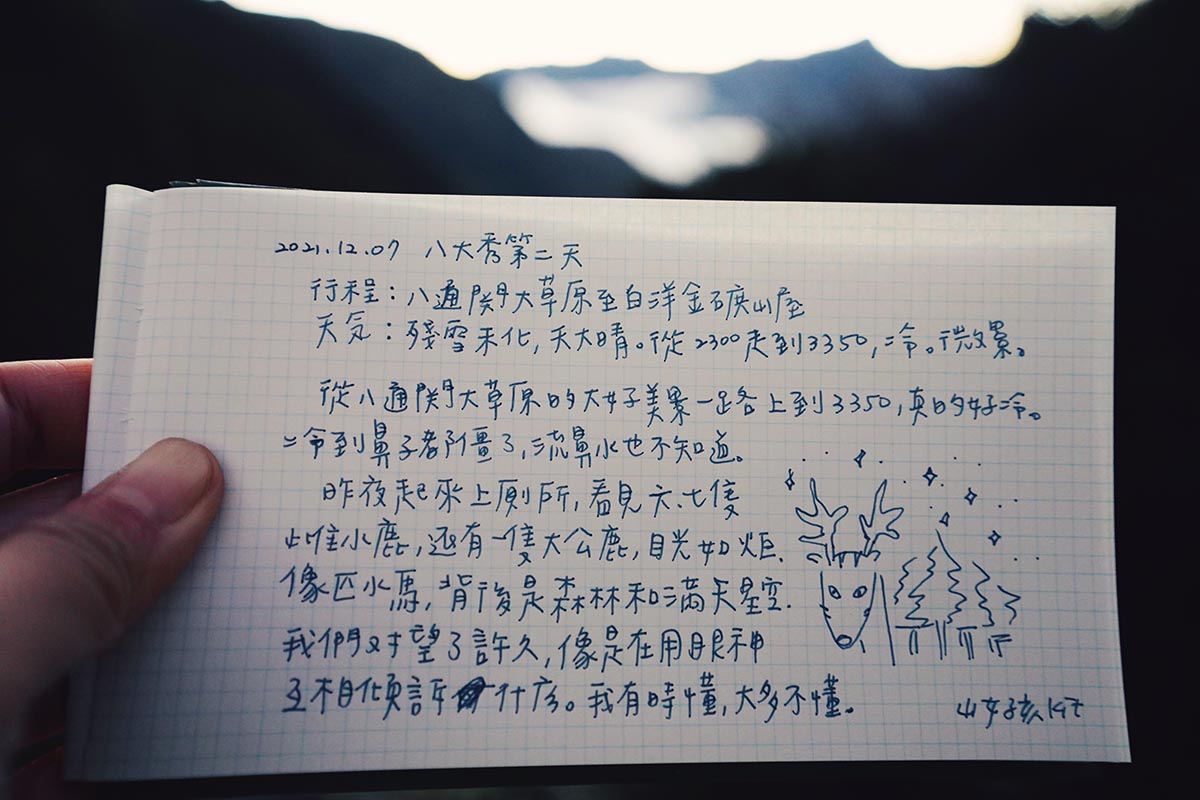 2021.12.07 八大秀第二天
行程：八通関大草原至白洋金礦山屋
天気：殘雪未化，天大晴。從2300走到3350，冷。微累。
從八通関大草原的大好美景一路上到3350，真的好冷。
冷到鼻子都僵了，流鼻水也不知道。
昨夜起來上厠所，看見六、七隻
雌小鹿，還有一隻大公鹿，目光如炬.
像匹小馬，背後是森林和滿天星空.
我們对望了許久，像是在用眼神
互相傾訴什麼。我有時懂，大多不懂。
山女孩Kit